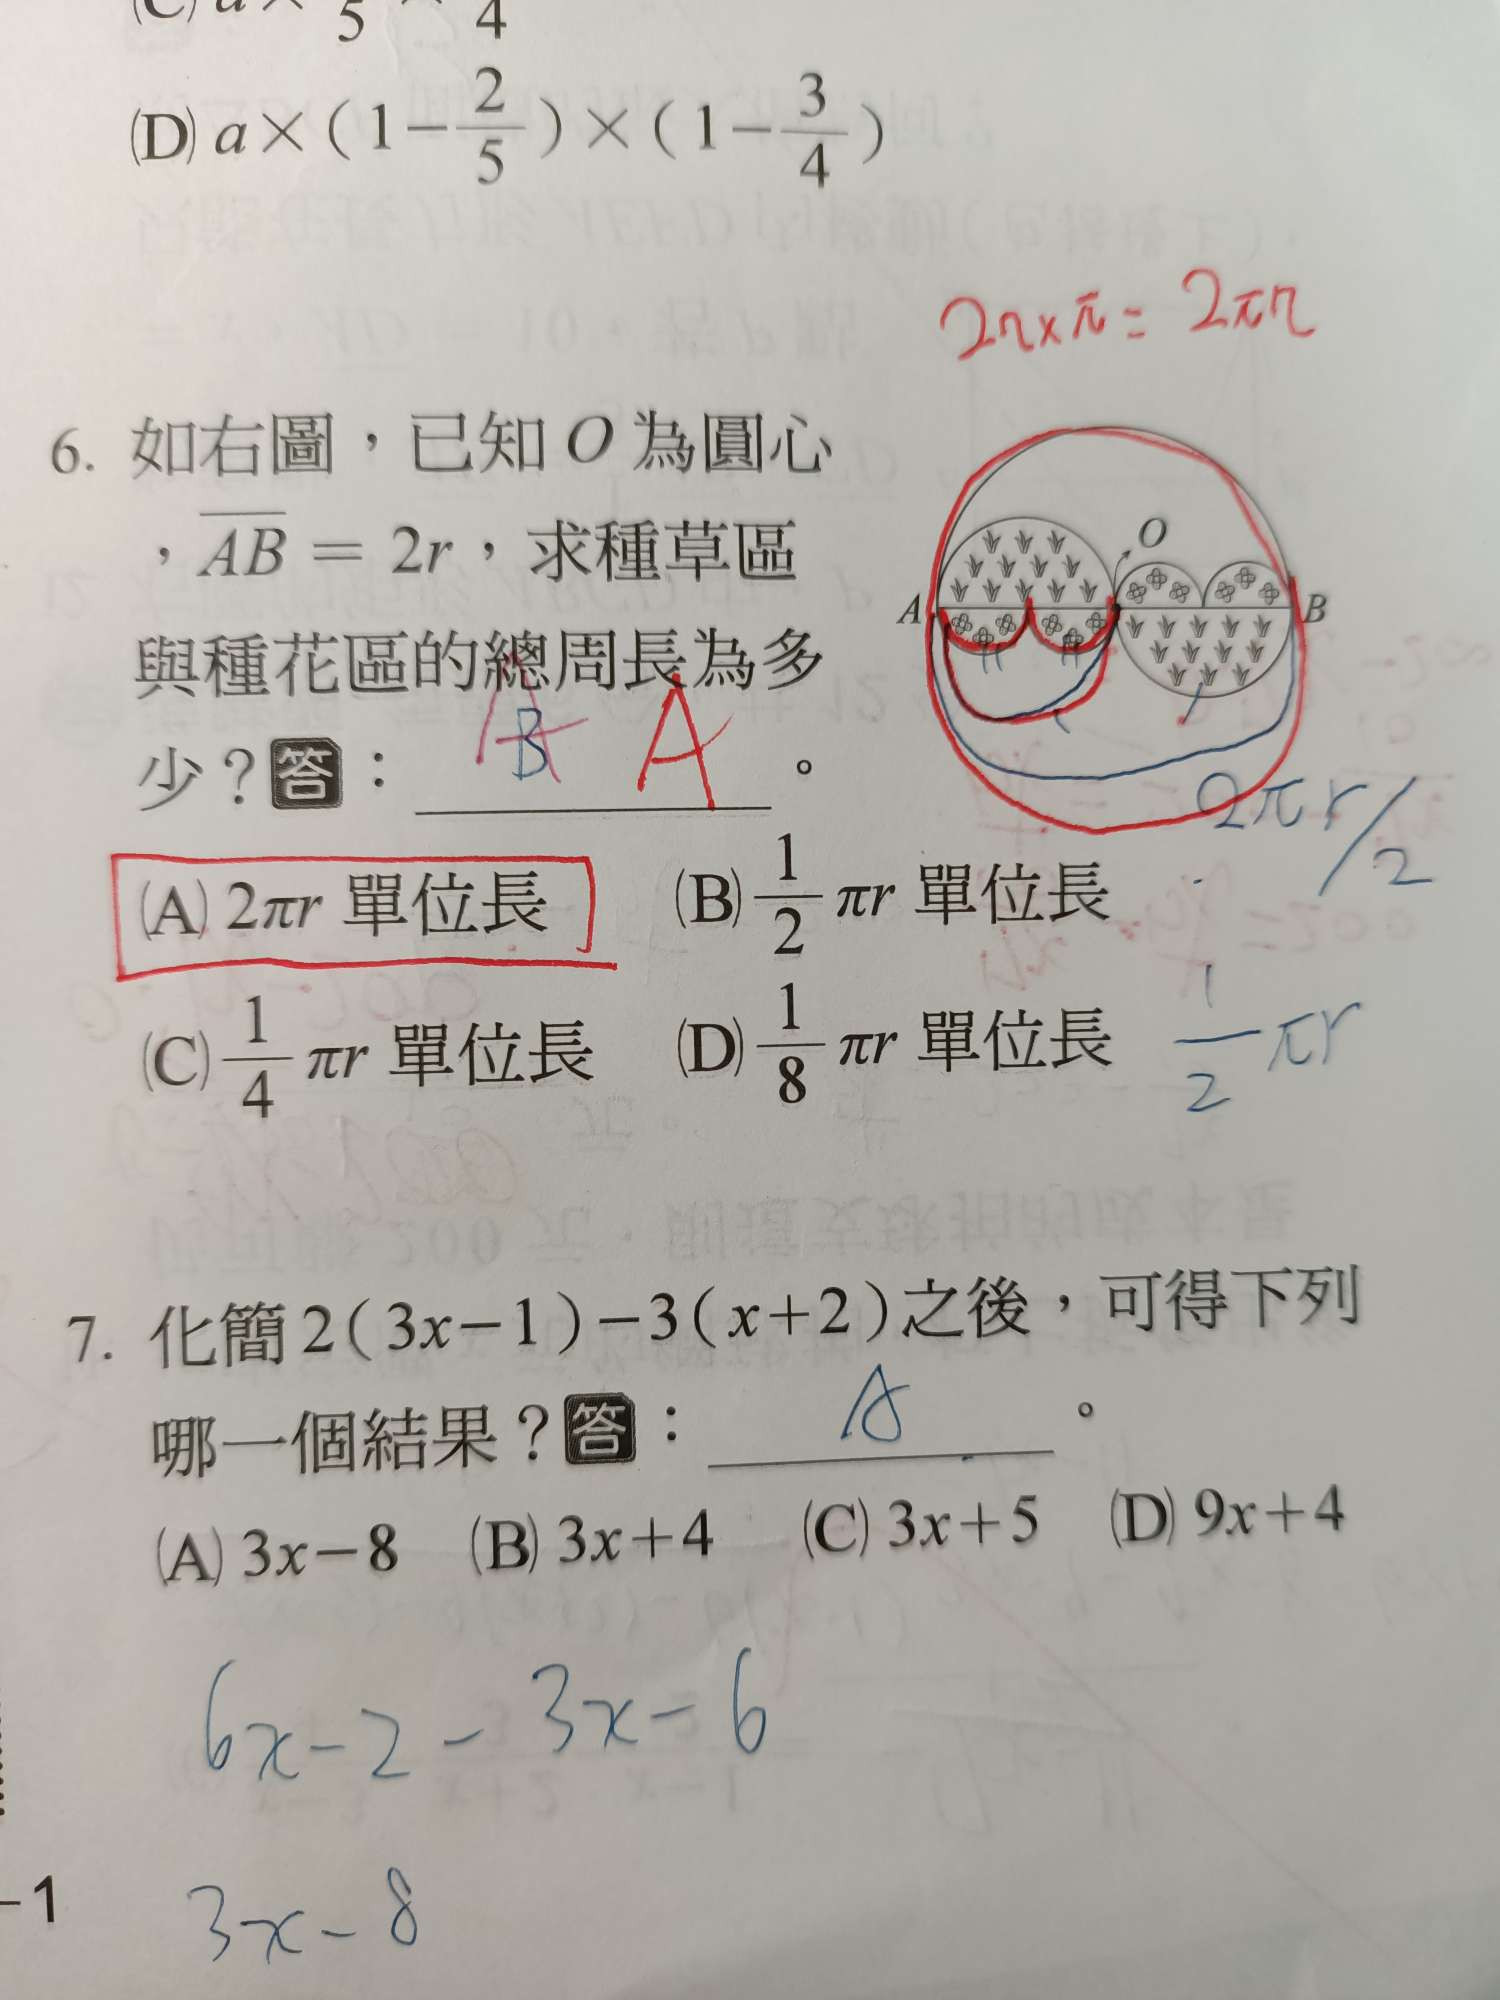 (C) a× /5 × /4
(D) a×(1−2/5)×(1−3/4)
2r×π=2πr
6. 如右圖，已知 O 為圓心
，AB = 2r，求種草區
與種花區的總周長為多
少？答：B A。
O
A
B
2πr/2
(A) 2πr 單位長 (B) 1/2 πr 單位長
(C) 1/4 πr 單位長 (D) 1/8 πr 單位長
1/2 πr
7. 化簡 2(3x−1)−3(x+2)之後，可得下列
哪一個結果？答：A。
(A) 3x−8 (B) 3x+4 (C) 3x+5 (D) 9x+4
6x−2−3x−6
3x−8
−1